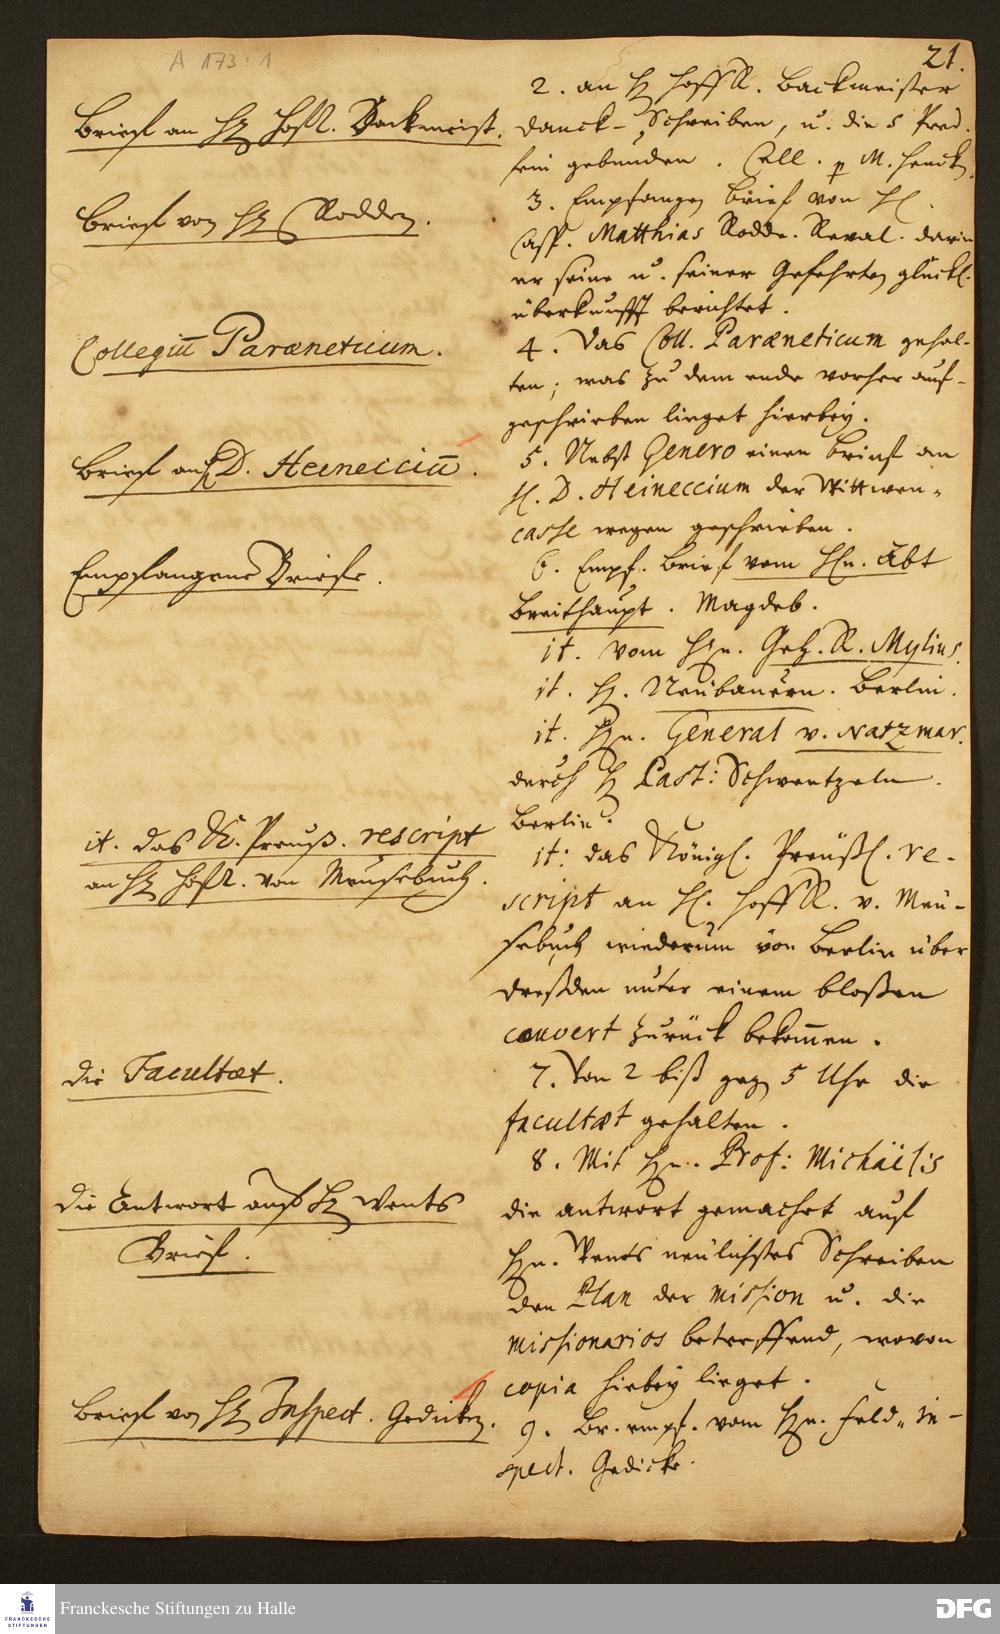 A 173:1
21.
Brieff an H Hoffr. Backmeist.
Brieff von H Rodden.
Collegiū Paræneticum.
Brieff an H D. Heinecciū.
Empfangene Brieffe.
it. das K. Preuß. rescript
an H Hoffr. von Meusebach.
die Facultæt.
die Antwort auf H Wents
Brieff.
Brieff von H Inspect. Gedicken.
2. an H HoffR. Backmeister
danck-Schreiben, u. die 5 Pred.
fein gebunden. Cell. p M. Henck
3. Empfangen Brief von H.
Casp. Matthias Rodde. Reval. darin
er seine u. seiner Gefehrten glückl.
überkunfft berichtet.
4. Das Coll. Paræneticum gehal-
ten; was zu dem ende vorher auf-
geschrieben lieget hierbey.
5. Nebst Genero einen Brief an
H. D. Heineccium der Wittwen-
casse wegen geschrieben.
6. Empf. Brief vom Hn. Abt
Breithaupt. Magdeb.
it. vom Hn. Geh. R. Mylius.
it. H. Neubauern. Berlin.
it. Hn. General v. Natzmar.
durch H Past: Schwentzeln.
Berlin.
it: das Königl. Preußl. re-
script an H. HoffR. v. Meu-
sebach wiederum von Berlin über
Dreßden unter einem bloßen
couvert zurück bekom̄en.
7. Von 2 biß geg 5 Uhr die
facultæt gehalten.
8. Mit Hn. Prof: Michäelis
die antwort gemachet auf
Hn. Wents neulichstes Schreiben
den Plan der Mission u. die
missionarios betreffend, wovon
copia hiebey lieget.
9. Br. empf. vom Hn. Feld-In-
spect. Gedicke.
FRANCKESCHE
STIFTUNGEN
Franckesche Stiftungen zu Halle
DFG